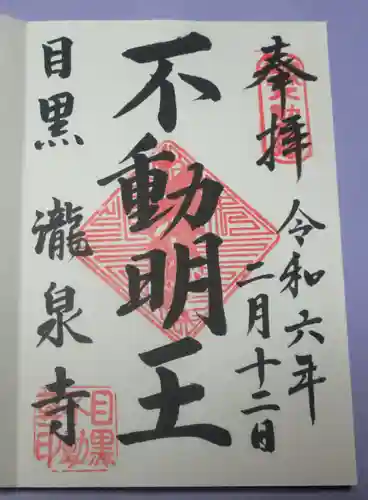 奉拝
令和六年
二月十二日
不動明王
目黒 瀧泉寺